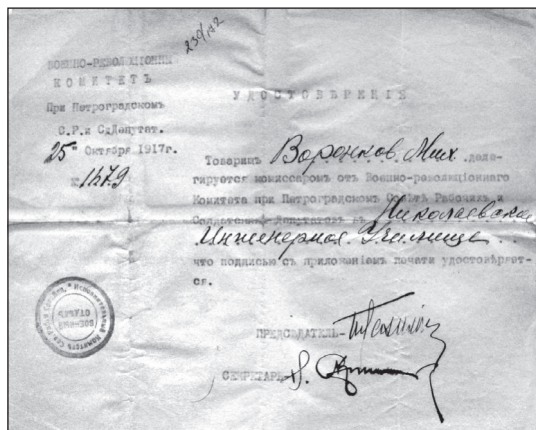 239/172
ВОЕННО-РЕВОЛЮЦІОНН
КОМИТЕТЪ
При Петроградскомъ
С.Р. и С.Депутат.
25 Октября 1917г.
№ 1479
УДОСТОВѢРЕНІЕ
Товарищъ Воронков. Мих. деле-
гируется комиссаромъ отъ Военно-революціоннаго
Комитета при Петроградскомъ Совѣтѣ Рабочихъ и
Солдатскихъ Депутатовъ въ Николаевское
Инженерное Училище
что подписью съ приложеніемъ печати удостовѣряет-
ся.
ПРЕДСѢДАТЕЛЬ-
СЕКРЕТАРЬ